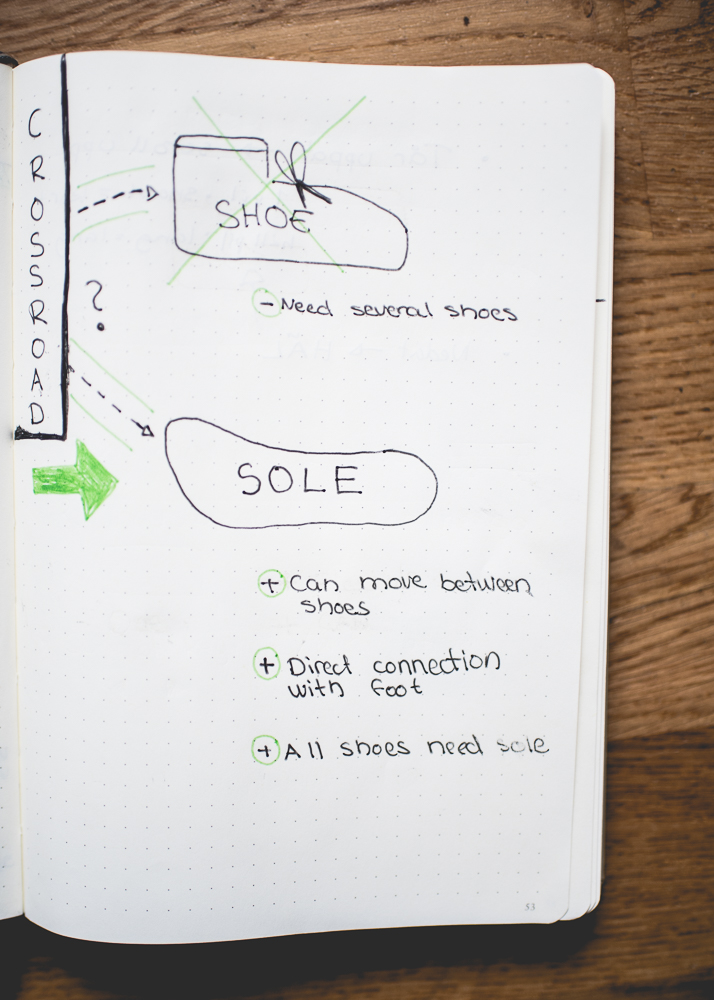 CROSSROAD
SHOE
?
- Need several shoes
SOLE
+ Can move between
shoes
+ Direct connection
with foot
+ All shoes need sole
53